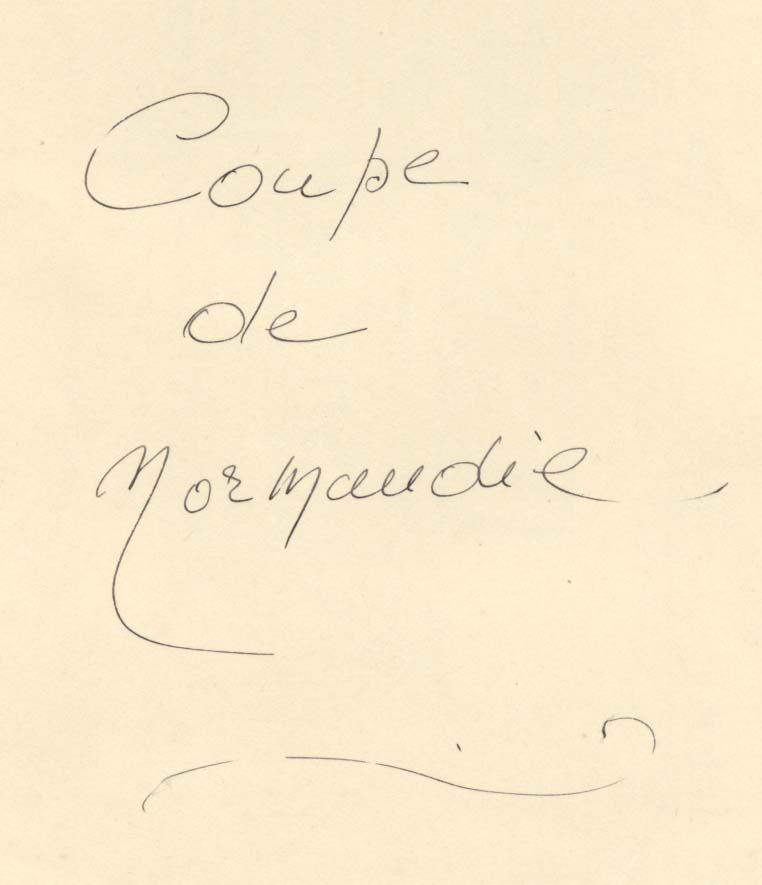 Coupe
de
Normandie